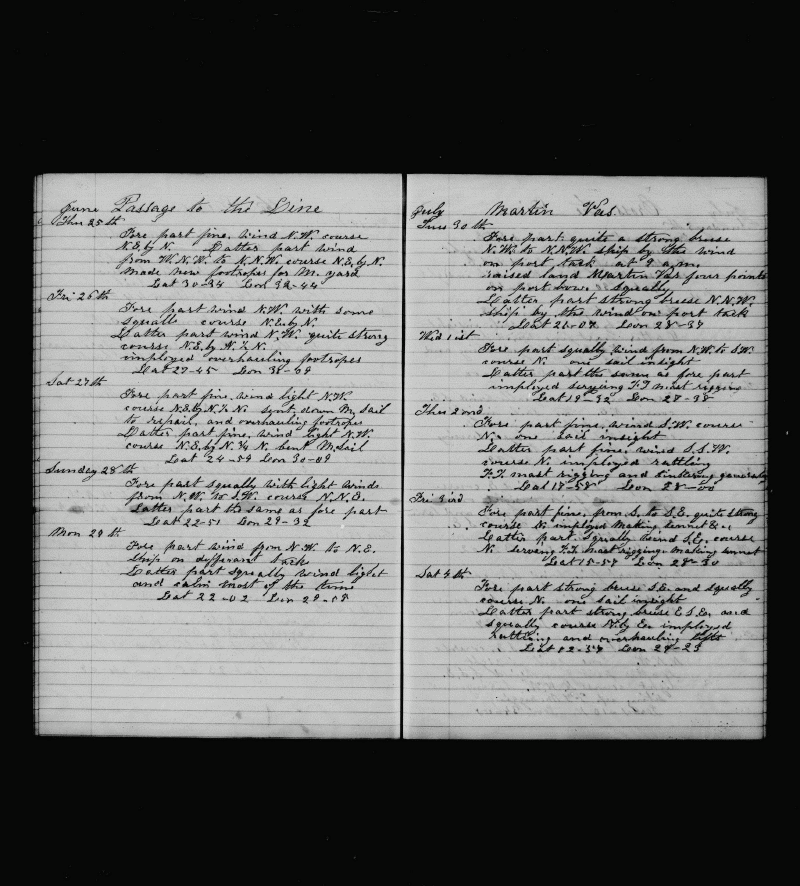 June Passage to the Line
Thu 25th
Fore part fine, wind N.W. course
N.E. by N. Latter part wind
from W.N.W. to N.N.W. course N.E. by N.
Made new footropes for M. yard
Lat 30-34 Lon 32-44
Fri 26th
Fore part wind N.W. with some
squalls course N.E. by N.
Latter part wind N.W. quite strong
course N.E. by N. ½ N.
imployed overhauling footropes
Lat 27-45 Lon
Sat 27th
Fore part fine, wind light N.W.
course N.E. by N. ½ N. sent down M. sail
to repair, and overhauling footropes
Latter part fine, wind light N.W.
course N.E. by N. ¼ N. bent M. sail
Lat 24-59 Lon 30-09
Sunday 28th
Fore part squally with light winds
from N.W. to S.W. course N.N.E.
Latter part the same as fore part
Lat 22-51 Lon 29-32
Mon 29th
Fore part wind from N.W. to N.E.
Ship on differant tacks
Latter part squally wind light
and calm most of the time
Lat 22-02 Lon 29-05
July Martin Vas.
Tues 30th
Fore part quite a strong breese
N.W. to N.N.W. ship by the wind
on port tack at 9 a.m.
raised land Martin Vas four points
on port bow. Squally
Latter part strong breese N.N.W.
ship by the wind on port tack
Lat 21-07 Lon 28-37
Wed 1st
Fore part squally wind from N.W. to S.W.
course N. one sail insight
Latter part the same as fore part
imployed serveing F.T. mast rigging
Lat 19-32 Lon 27-38
Thu 2nd
Fore part fine, wind S.W. course
N. one sail insight
Latter part fine, wind S.S.W.
course N. imployed rattling
F.T. mast rigging and
Lat 17-58 Lon 28-00
Fri 3rd
Fore part fine, from S. to S.E. quite strong
course N. imployed making sennet &c.
Latter part squally wind S.E. course
N. serveing F.T. mast rigging. making sennet
Lat 15-57 Lon 28-30
Sat 4th
Fore part strong breese S.E. and squally
course N. one sail insight
Latter part strong breese E.S.E. and
squally course N. by E. imployed
rattling and overhauling lifts
Lat 12-57 Lon 29-23